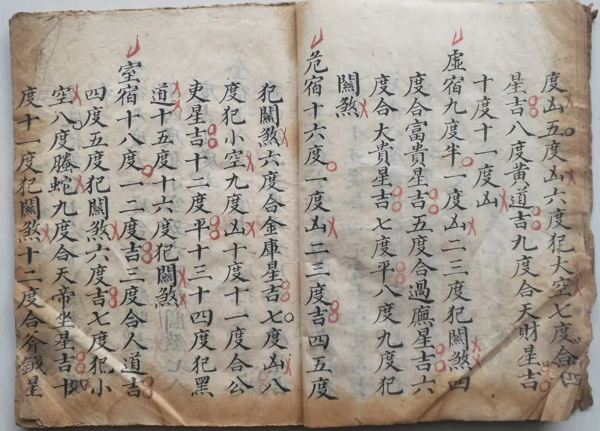 度凶五度凶六度犯大空七度合
星吉八度黄道吉九度合天財星吉
十度十一度凶
虚宿九度半一度凶二三度犯關煞四
度合富貴星吉五度合過廡星吉六
度合大貴星吉七度平八度九度犯
關煞
危宿十六度一度凶二三度吉四五度
犯關煞六度合金庫星吉七度凶八
度犯小空九度凶十度十一度合公
吏星吉十二度平十三十四度犯黑
道十五度十六度犯關煞
室宿十八度一二度吉三度合人道吉
四度五度犯關煞六度吉七度犯小
空八度螣蛇九度合天帝坐星吉十
度十一度犯關煞十二度合斧鉞星